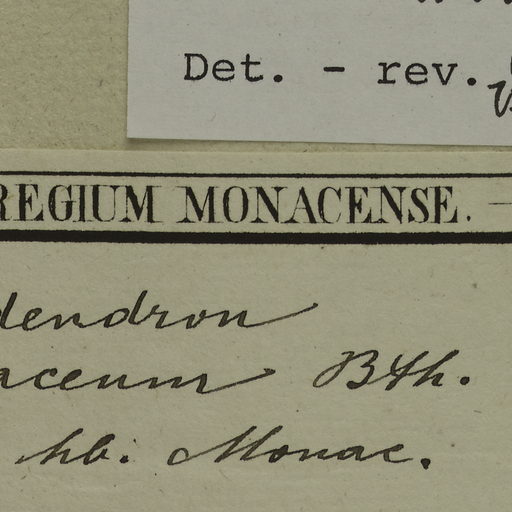 Det. - rev.
REGIUM MONACENSE. —
dendron
aceum Bth.
hb. Monac.